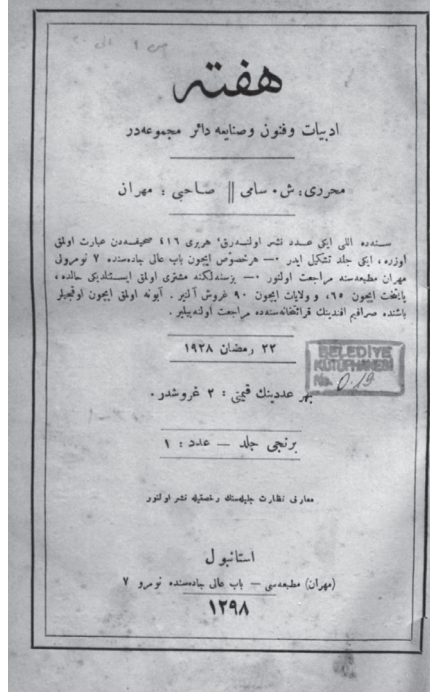 هفته
ادبیات و فنون و صنایعه دائر مجموعه‌در
محرری: ش٠ سامی || صاحبی: مهران
سنه‌ده اللی ایکی عدد نشر اولنه‌رق٬ هربری ٤١٦ صحیفه‌دن عبارت اولمق
اوزره، ایکی جلد تشکیل ایدر ٠— هرخصوص ایچون باب عالی جاده‌سنده ٧ نومرولی
مهران مطبعه‌سنه مراجعت اولنور ٠— برسنه‌لکنه مشتری اولمق ایستنلدیکی حالده،
پایتخت ایچون ٦٥، و ولایات ایچون ٩٠ غروش آلنیر. آبونه اولمق ایچون اوقجیلر
باشنده صرافیم افندینك قرائتخانه‌سنه‌ده مراجعت اولنه‌بیلیر.
٢٢ رمضان ١٩٢٨
BELEDİYE
KÜTÜPHANESİ
No. 0.19
بهر عددینك قیمتی: ٢ غروشدر.
برنجی جلد — عدد: ١
معارف نظارت جلیله‌سنك رخصتیله نشر اولنور
استانبول
(مهران) مطبعه‌سی — باب عالی جاده‌سنده نومرو ٧
١٢٩٨